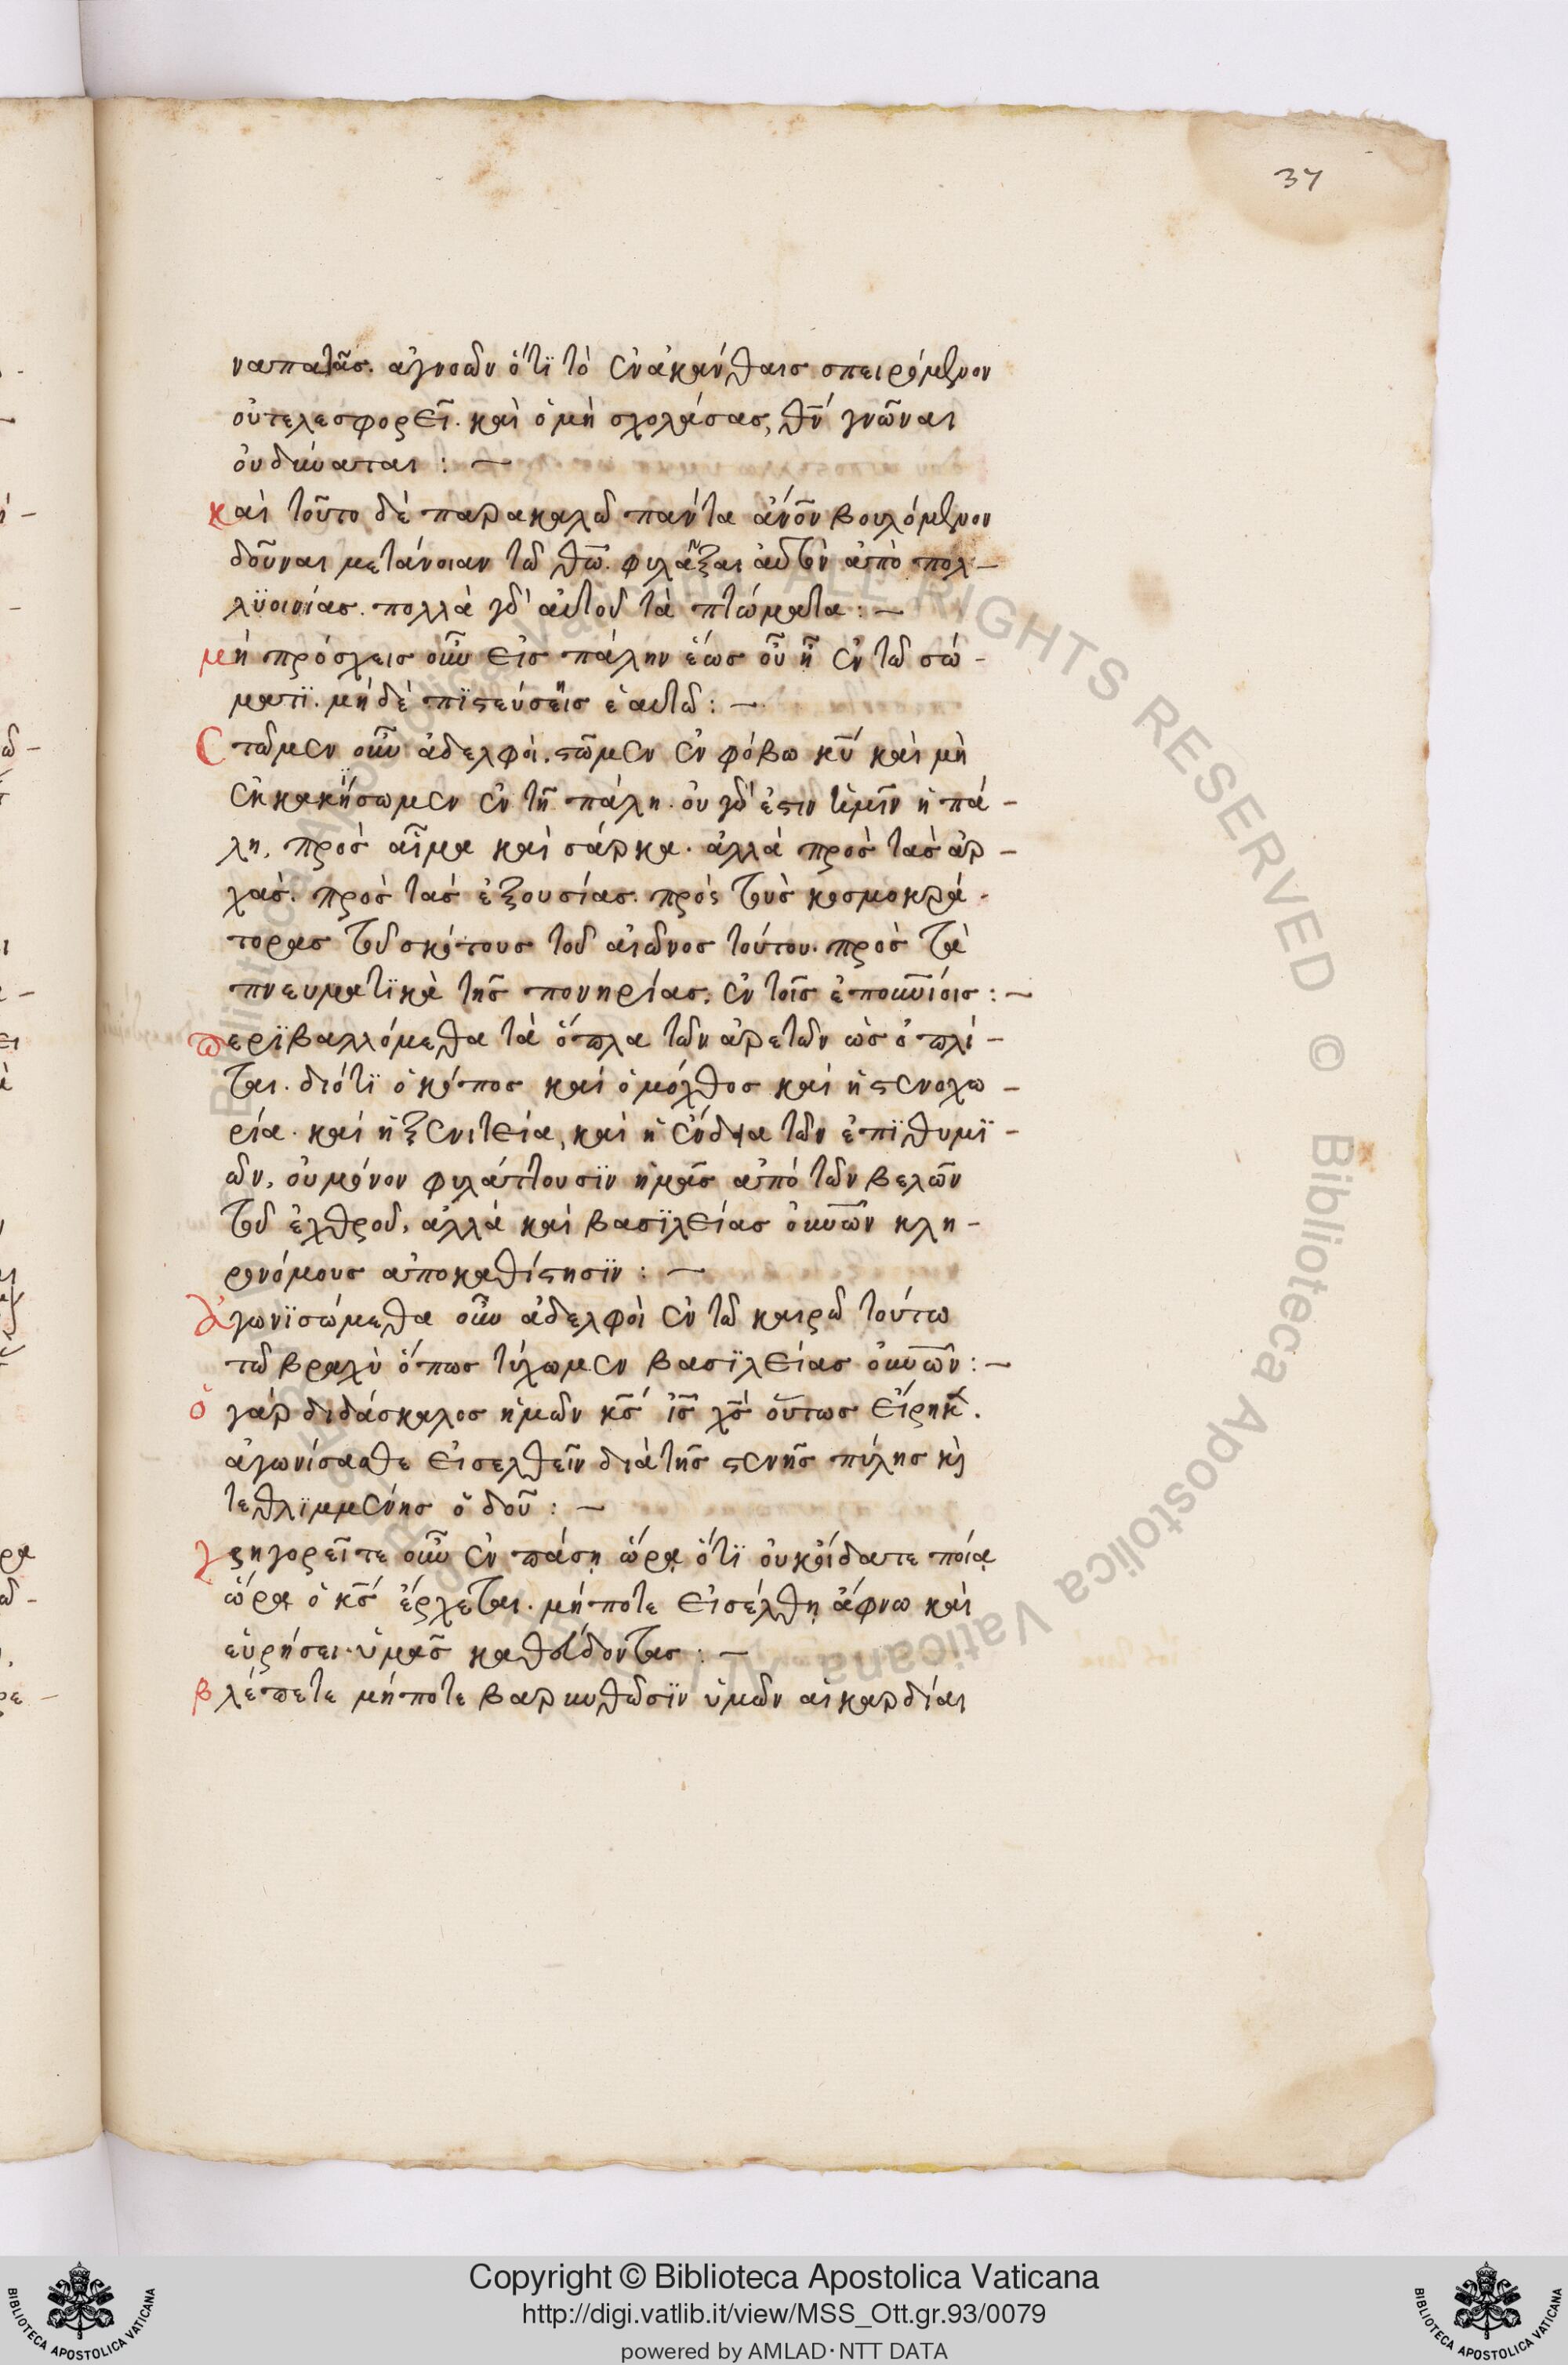 37
ναπατᾶσ. ἀγνοῶν ὅτϊ τὸ ἐν ἀκάνθαισ σπειρόμενον
οὐ τελεσφορεῖ. καὶ ὁ μὴ σχολάσας, θν̄ γνῶναι
οὐ δύναται : —
καὶ τοῦτο δὲ παρακαλῶ πάντα ἄνον̄ βουλόμενον
δοῦναι μετάνοιαν τῶ θω̄. φυλᾶξαι αὐτὸν ἀπὸ πολ-
λϋοινίας. πολλὰ γὰρ αὐτοῦ τὰ πτώματα : —
μὴ πρόσχεισ οὖν εἰσ πάλην ἕωσ οὗ ἦ ἐν τῶ σώ -
ματϊ. μὴ δὲ πϊστεύσῃσ ἑαυτῶ : —
Στῶμεν οὖν ἀδελφοὶ. στῶμεν ἐν φόβω κῡ καὶ μὴ
ἐκκακήσωμεν ἐν τῆ πάλη. οὐ γὰρ ἔστιν ἡμῖν ἡ πά -
λη, πρὸσ αἷμα καὶ σάρκα. ἀλλὰ πρὸσ τὰσ ἀρ -
χάσ. πρὸσ τὰσ ἐξουσίασ. πρὸς τοὺσ κοσμοκρά -
τορασ τοῦ σκότουσ τοῦ αἰῶνοσ τούτου. πρὸσ τὰ
πνευματϊκὰ τῆσ πονηρίασ. ἐν τοῖσ ἐπουνίοισ : —
περϊβαλλόμεθα τὰ ὅπλα τῶν ἀρετῶν ὡσ ὁπλί -
ται. διότϊ ὁ κόποσ καὶ ὁ μόχθοσ καὶ ἡ στενοχω -
ρία. καὶ ἡ ξενιτεία, καὶ ἡ ἔνδεια τῶν ἐπϊθυμϊ -
ῶν, οὐ μόνον φυλάττουσϊν ἡμᾶσ ἀπὸ τῶν βελῶν
τοῦ ἐχθροῦ, ἀλλὰ καὶ βασϊλείασ οὐνῶν κλη -
ρονόμουσ ἀποκαθίστησϊν : —
Ἀγωνϊσώμεθα οὖν ἀδελφοὶ ἐν τῶ καιρῶ τούτω
τῶ βραχὺ ὅπωσ τύχωμεν βασϊλείασ οὐνῶν : —
ὁ γὰρ διδάσκαλοσ ἡμῶν κσ̄ ισ̄ χσ̄ οὕτωσ εἴρηκε.
ἀγωνίσασθε εἰσελθεῖν διὰ τῆσ στενῆσ πύλησ κ̀
τεθλϊμμένησ ὁδοῦ : —
γρηγορεῖτε οὖν ἐν πάσῃ ὥρᾳ ὅτϊ οὐκ οἴδατε ποίᾳ
ὥρᾳ ὁ κσ̄ ἔρχεται. μήποτε εἰσέλθῃ ἄφνω καὶ
εὑρήσει ὑμᾶσ καθεύδοντασ : —
βλέπετε μήποτε βαρυνθῶσϊν ὑμῶν αἱ καρδίαι
Copyright © Biblioteca Apostolica Vaticana
http://digi.vatlib.it/view/MSS_Ott.gr.93/0079
powered by AMLAD·NTT DATA